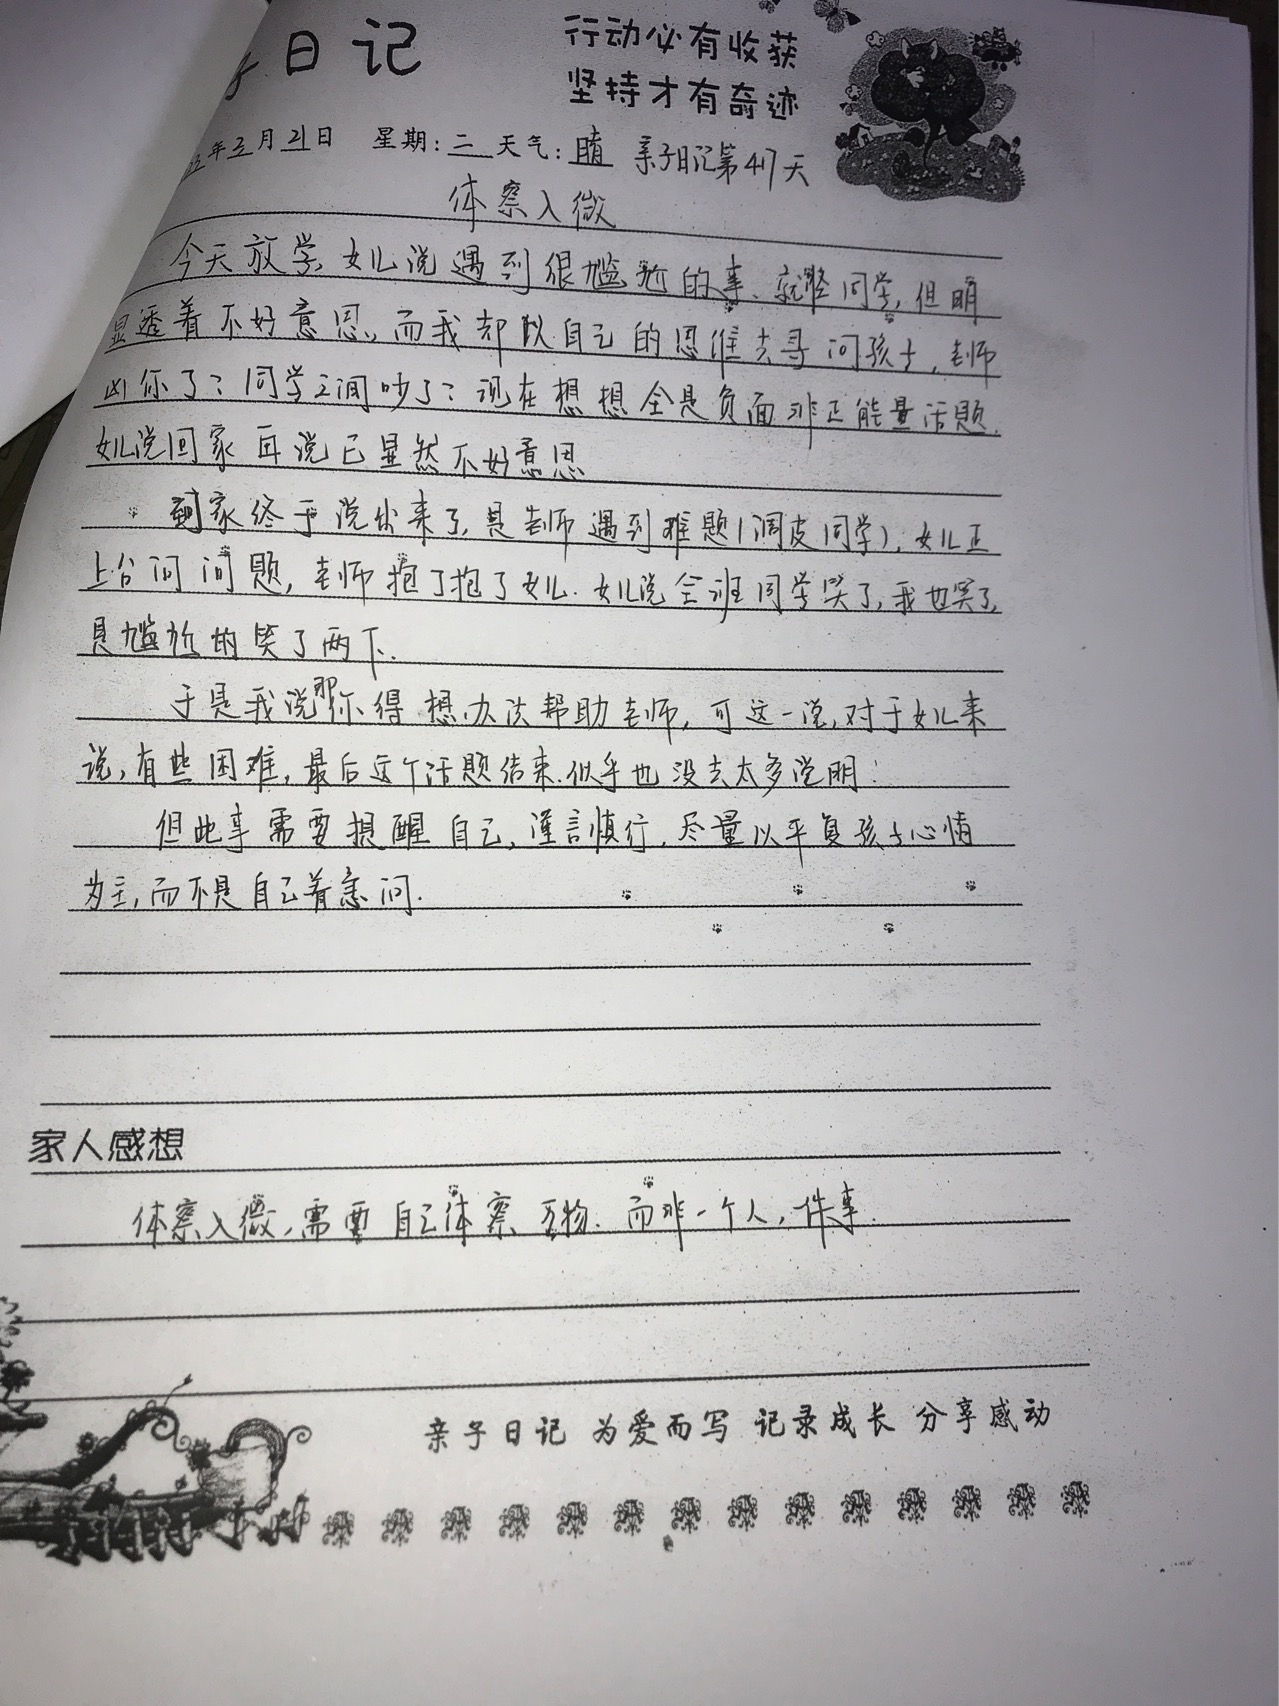 子日记
行动必有收获
坚持才有奇迹
年三月21日 星期:二 天气:晴 亲子日记第417天
体察入微
今天放学,女儿说遇到很尴尬的事、同学,但明
显透着不好意思,而我却以自己的思维去寻问孩子,老师
凶你了?同学之间吵了?现在想想全是负面非正能量话题.
女儿说回家再说已显然不好意思
到家终于说出来了,是老师遇到难题(调皮同学),女儿正
上台问问题,老师抱了抱了女儿.女儿说全班同学笑了,我也笑了,
是尴尬的笑了两下.
于是我说那你得想办法帮助老师,可这一说,对于女儿来
说,有些困难,最后这个话题结束.似乎也没去太多说明!
但此事需要提醒自己,谨言慎行,尽量以平复孩子心情
为主,而不是自己着急问.
家人感想
体察入微,需要自己体察万物.而非一个人,件事.
亲子日记 为爱而写 记录成长 分享感动